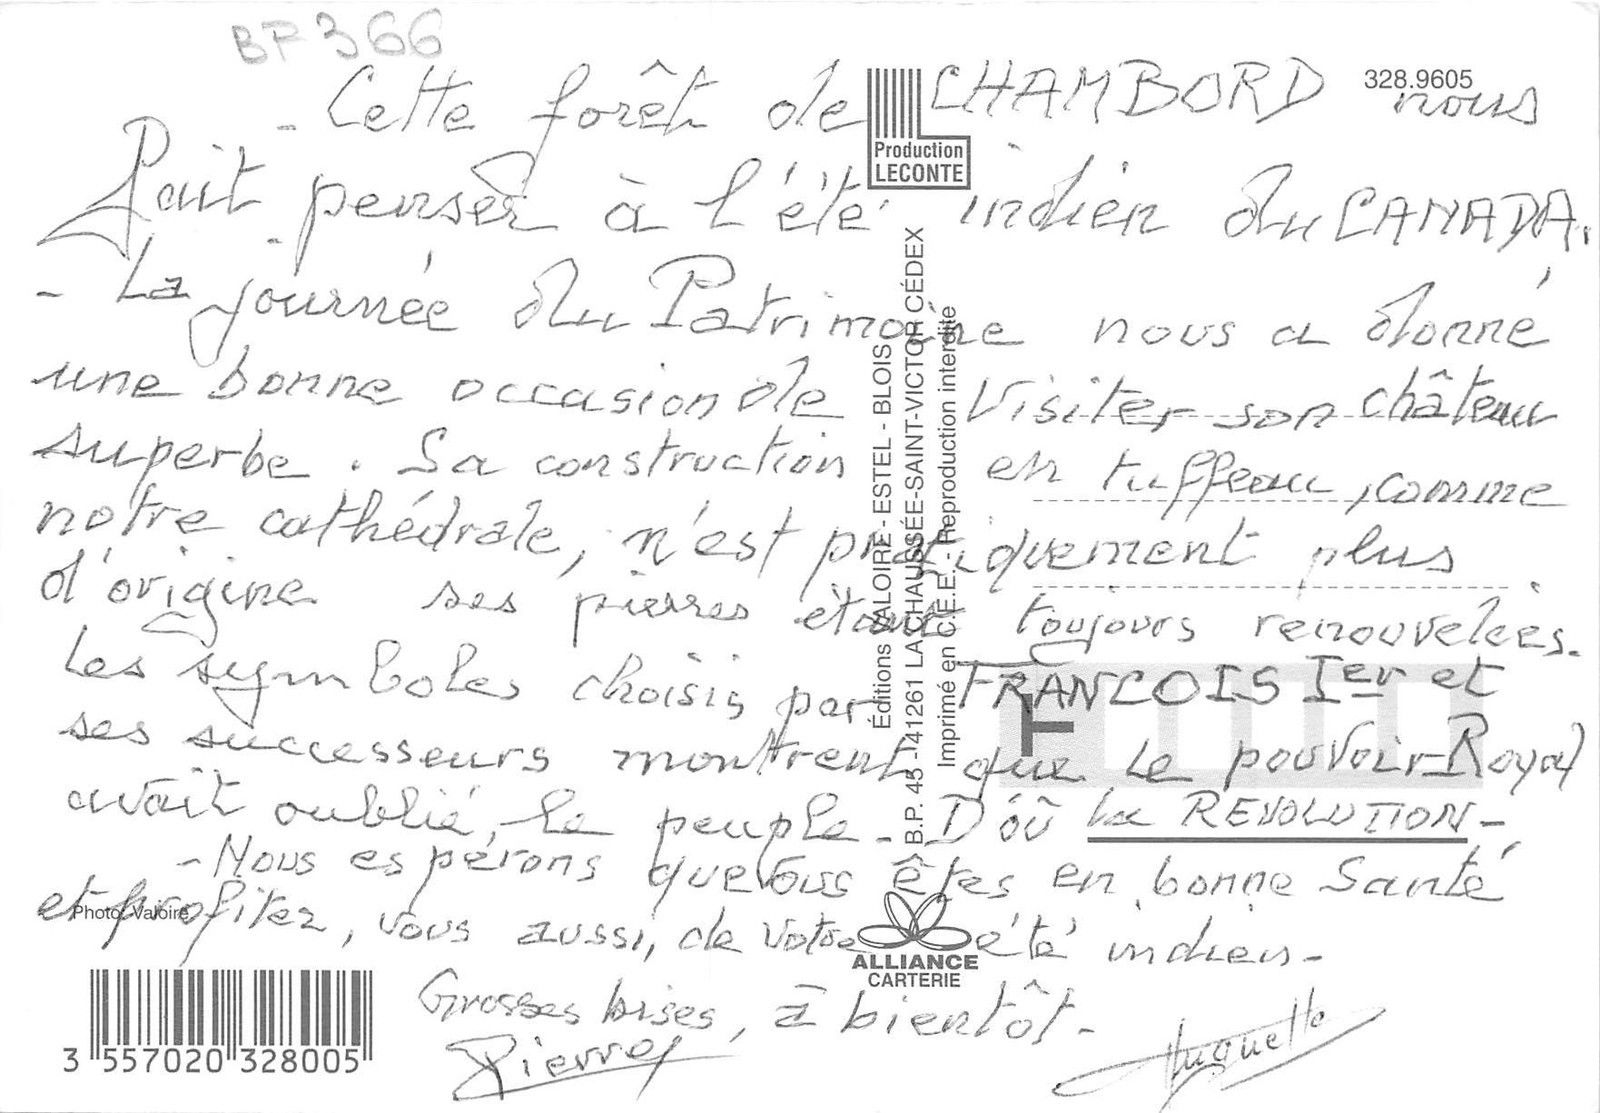 BF 366
328.9605
- Cette forêt de CHAMBORD nous
fait penser à l'été indien du CANADA.
- La journée du Patrimoine nous a donné
une bonne occasion de visiter son château
superbe. Sa construction en tuffeau, comme
notre cathédrale, n'est pratiquement plus
d'origine ses pierres étant toujours renouvelées.
Les symboles choisis par FRANCOIS Ier et
ses successeurs montrent que le pouvoir Royal
avait oublié, le peuple - D'où la REVOLUTION -
- Nous espérons que vous êtes en bonne Santé
et profitez, vous aussi, de votre été indien -
Grosses bises, à bientôt -
Pierre
Huguette
Production
LECONTE
Éditions VALOIRE - ESTEL - BLOIS
B.P. 45 - 41261 LA CHAUSSÉE-SAINT-VICTOR CÉDEX
Imprimé en C.E.E. - Reproduction interdite
T
Photo: Valoire
ALLIANCE
CARTERIE
3 557020 328005